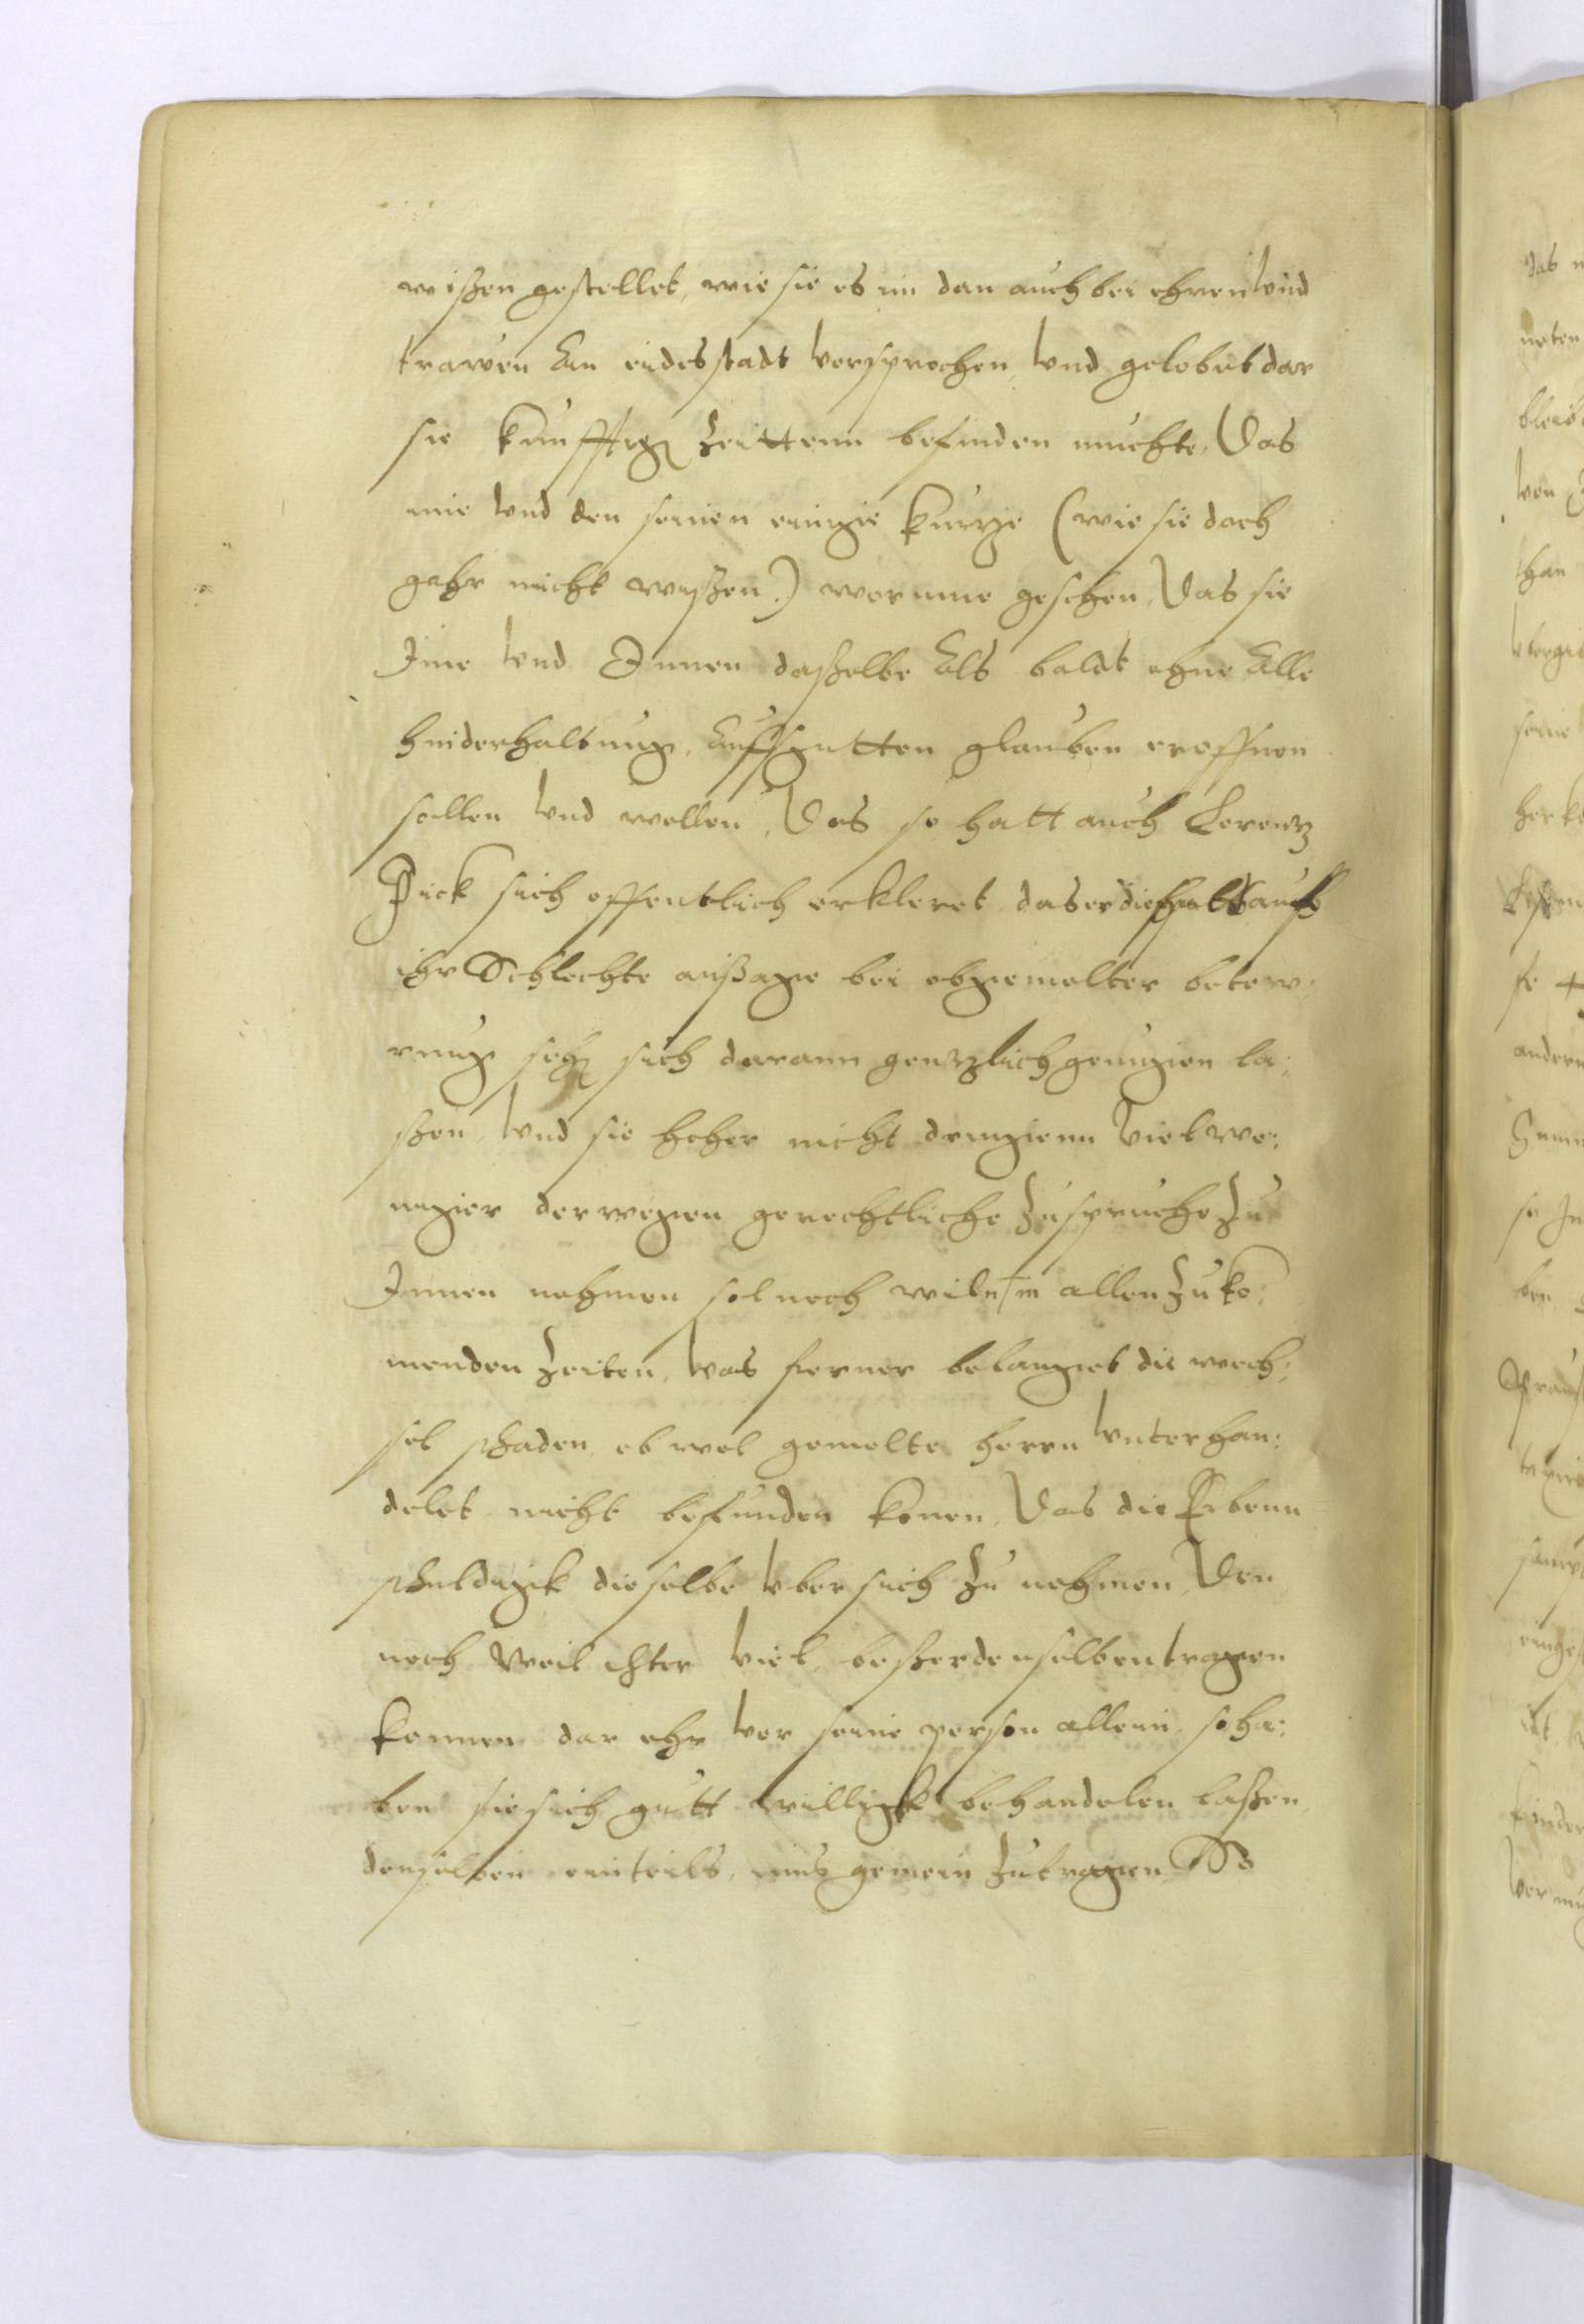 wißen gestellet, wie sie es im dan auch bei ehren vnd
trawen an eides stadt versprochen, vnd gelobet dar
sie kunfftig Zeittenn befinden muchte, Das
ime vnd den seinen einige kurtze (wie sie doch
gahr nicht wusten) worinne geschen, Das sie
Ime vnd Innen daßelbe als baldt ohne alle
hinderhaltung, auff gutten glauben eroffnen
sollen vnd wollen, Das so hatt auch Lorentz
Pick sich offentlich erkleret das er dießfals auff
ihr Schlechte außage bei obgemelter betew:
rung sich darann gentzlich genugen la:
ßen, vnd sie hoher nicht dringenn viel we:
niger derwegen gerechtliche Zuspruche Zu
Innen nehmen sol noch wil in allen Zuko:
menden Zeiten, was ferner belanget die wech:
sel schaden ob wol gemelte herrn vnterhan:
delet nicht befunden konen, Das die Erbenn
schuldigk dieselbe vber sich Zu nehmen, Den
noch weil viel beßer denselben tragen
konnen dar ehr vor seine person allein, so ha:
ben sie sich gutt willigk behandelen laßen,
denselben einteils, gemein Zutragen So
das